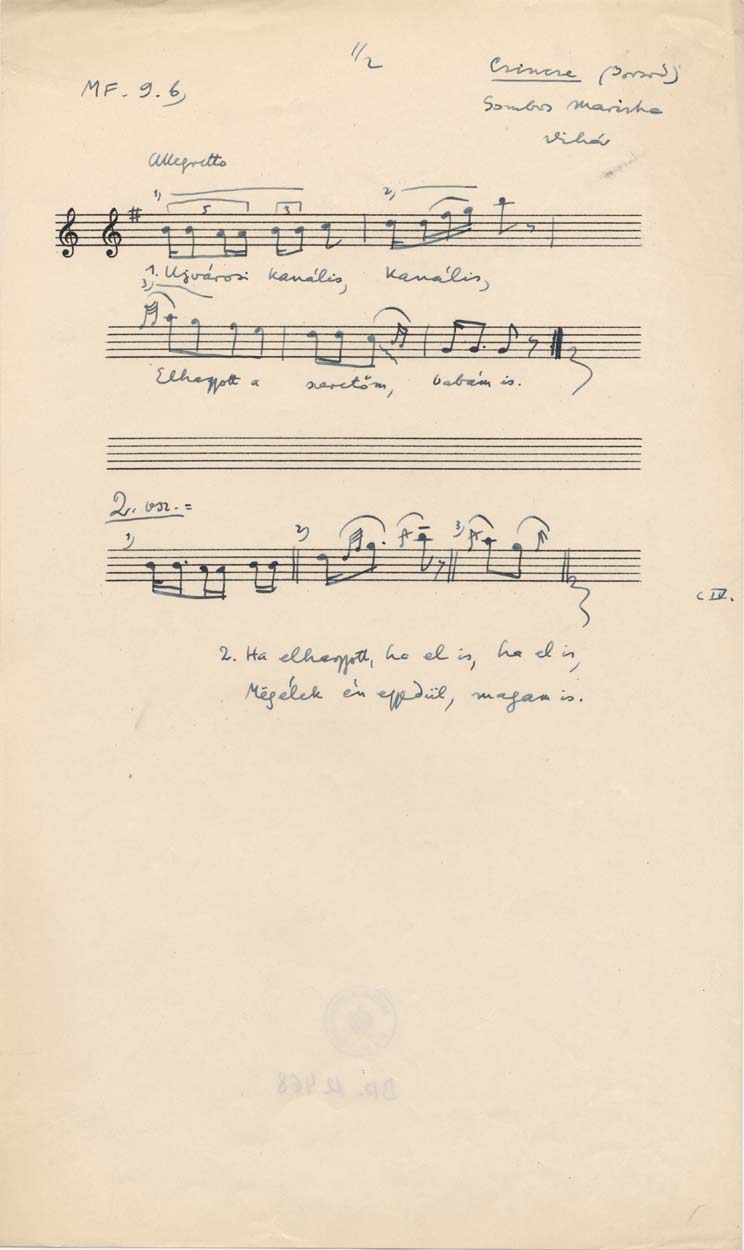 1/2
MF. 9. 6,
Csincse (Borsod)
Sombos Mariska
Vihár
Allegretto
1) 5 3 2)
1. Ujvárosi kanális, kanális,
3)
Elhagyott a szeretőm, babám is.
2. vsz. =
1) 2) 3)
C IV.
2. Ha elhagyott, ha el is, ha el is,
Mëgélek én egyedül, magam is.
BR. 12468